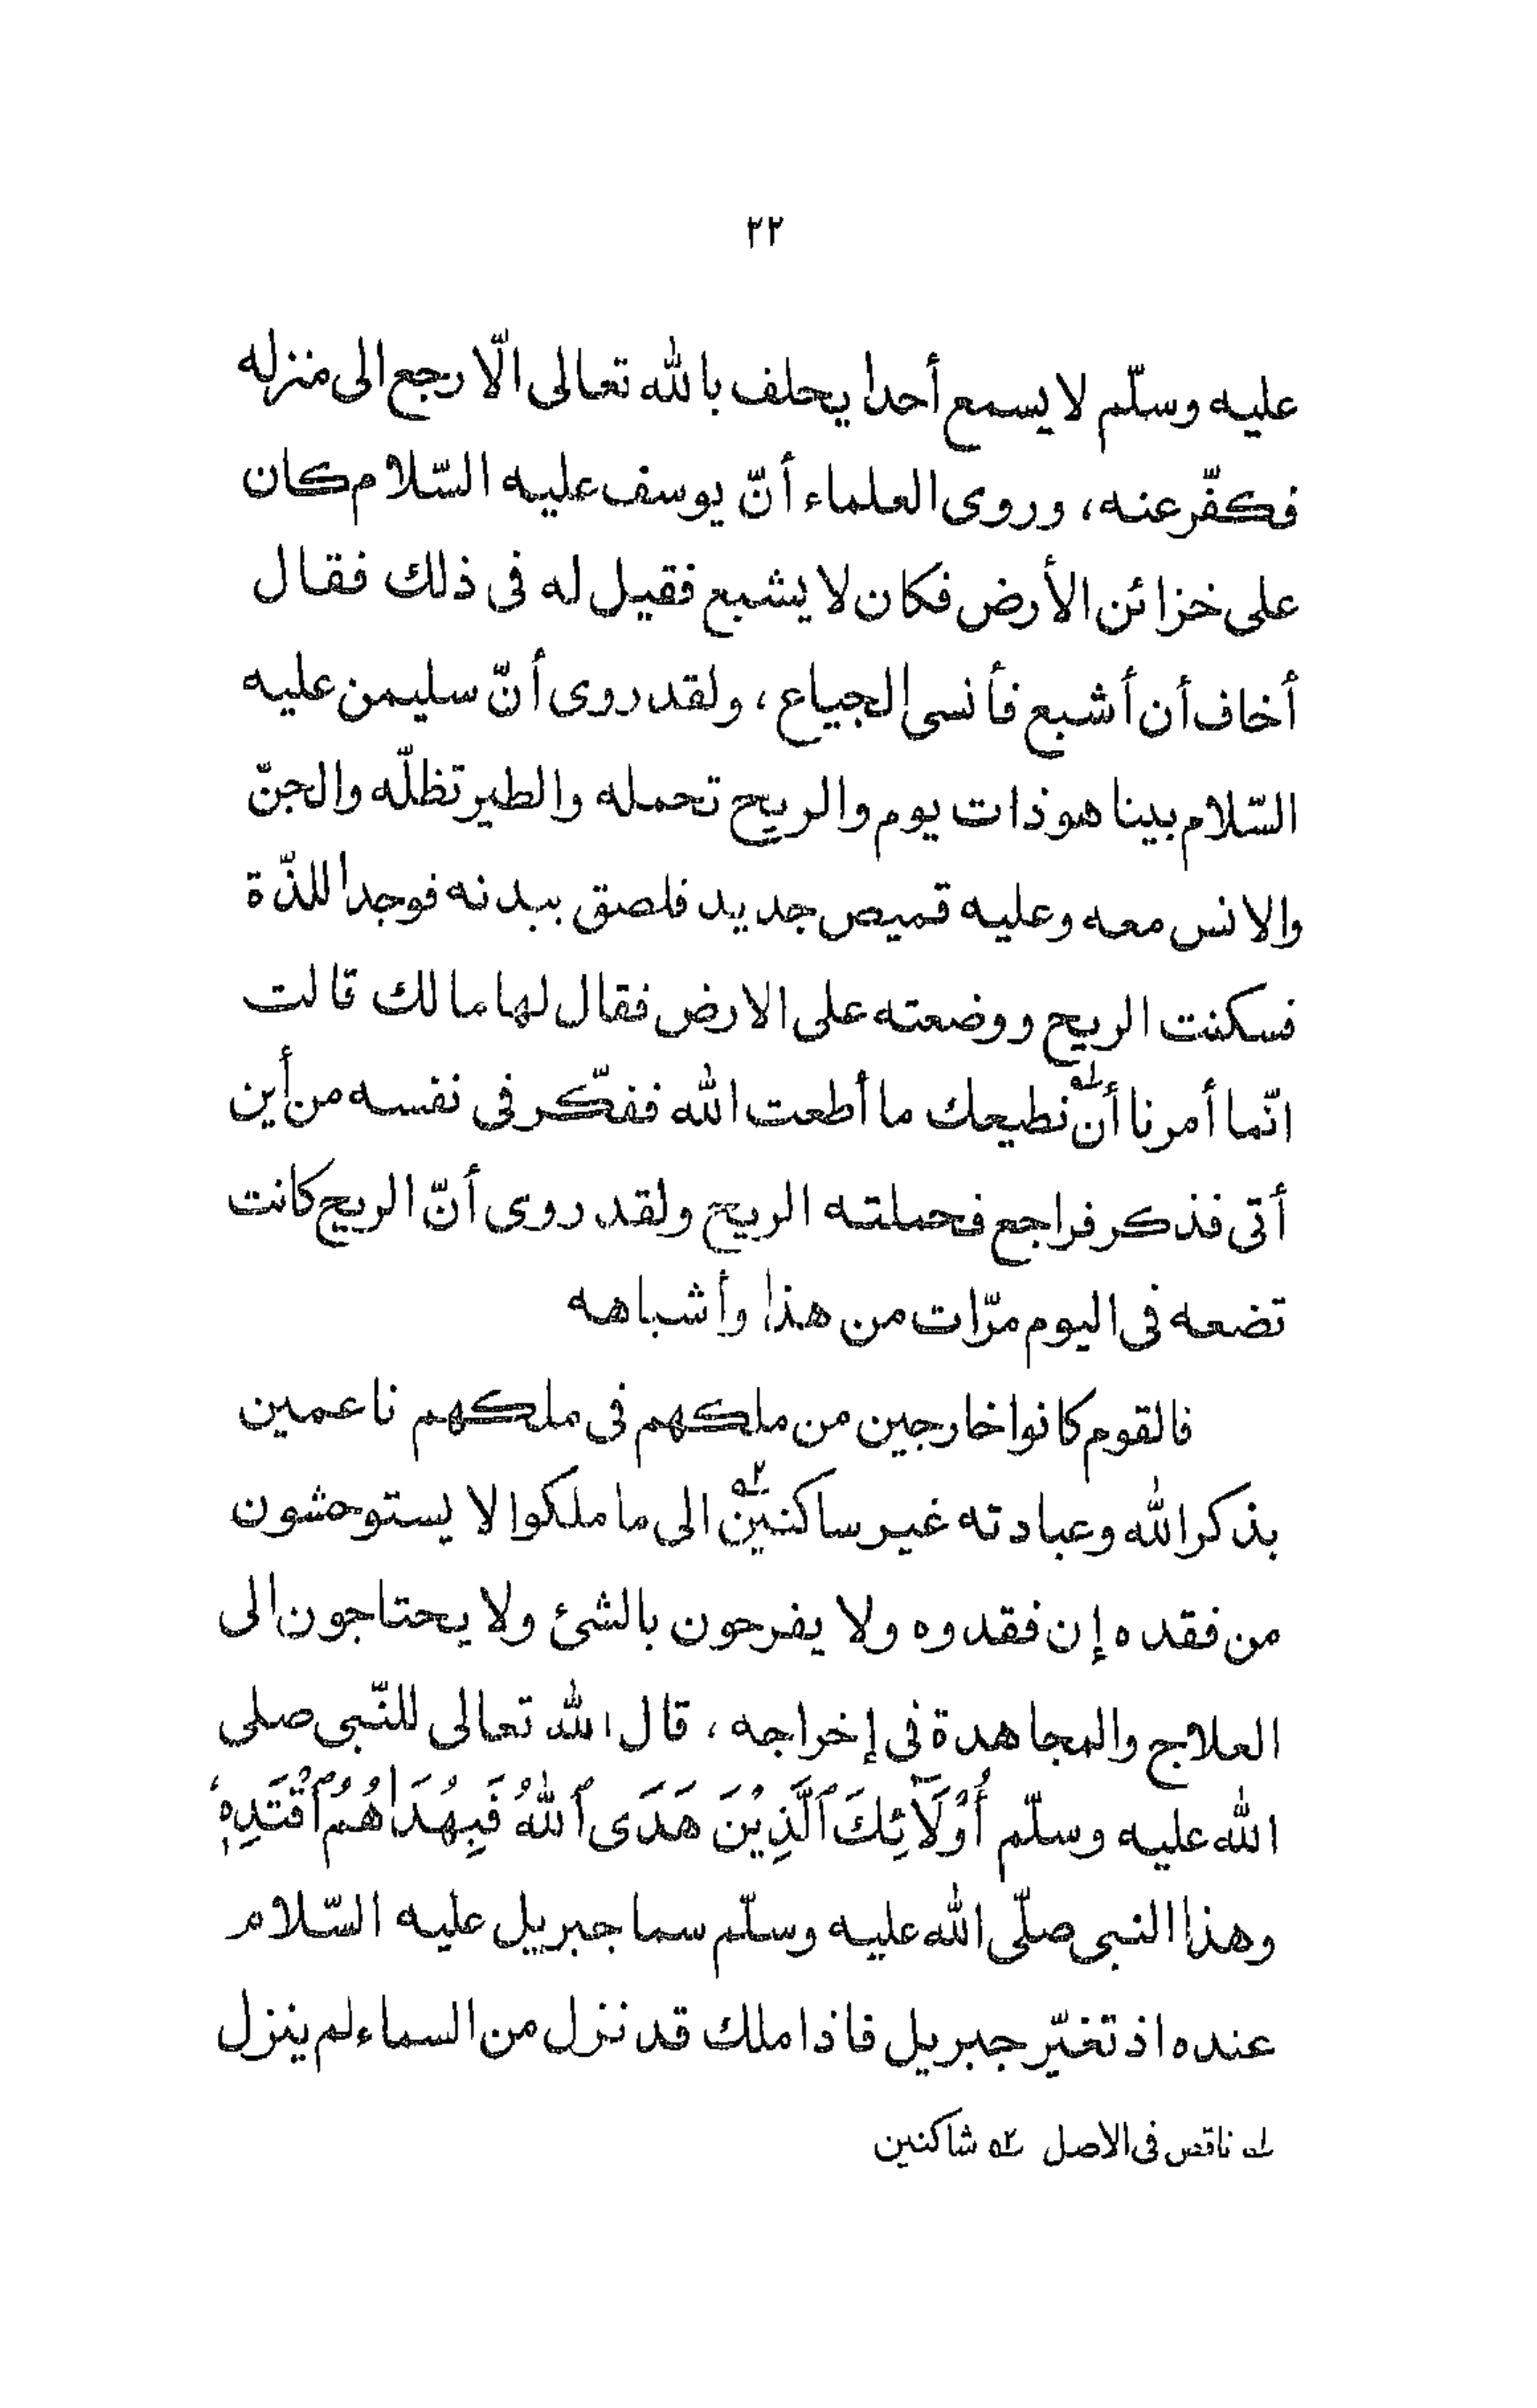 ٢٢
عليه وسلّم لا يسمع أحدا يحلف بالله تعالى الّا رجع الى منزله
فكفّر عنه، وروى العلماء أنّ يوسف عليه السّلام كان
على خزائن الأرض فكان لا يشبع فقيل له فى ذلك فقال
أخاف أن أشبع فأنسى الجياع، ولقد روى أنّ سليمن عليه
السّلام بينا هو ذات يوم والريح تحمله والطير تظلّه والجنّ
والانس معه وعليه قميص جديد فلصق ببدنه فوجد اللذّة
فسكنت الريح ووضعته على الارض فقال لها مالك قالت
انّما أمرنا أن له نطيعك ما أطعت الله ففكّر فى نفسه من أين
أتى فذكر فراجع فحملته الريح ولقد روى أنّ الريح كانت
تضعه فى اليوم مرّات من هذا وأشباهه
فالقوم كانوا خارجين من ملكهم فى ملكهم ناعمين
بذكر الله وعبادته غير ساكنين ٢ه الى ما ملكوا لا يستوحشون
من فقده إن فقدوه ولا يفرحون بالشئ ولا يحتاجون الى
العلاج والمجاهدة فى إخراجه، قال الله تعالى للنّبى صلى
الله عليه وسلّم أُوْلَآئِكَ ٱلَّذِيْنَ هَدَى ٱللّٰهُ فَبِهُدَاهُمُ ٱقْتَدِهْ،
وهذا النبى صلّى الله عليه وسلّم سما جبريل عليه السّلام
عنده اذ تغيّر جبريل فاذا ملك قد نزل من السماء لم ينزل
له ناقص فى الاصل ٢ه شاكنين